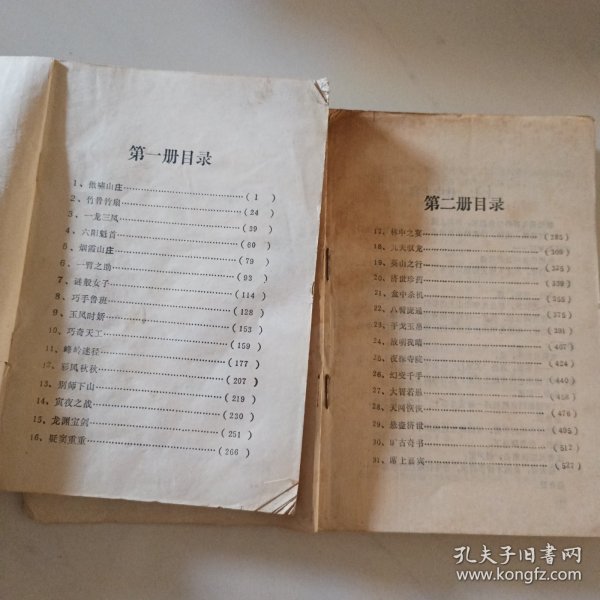 第一册目录
1、傲啸山庄……(1)
2、竹骨竹扇……(24)
3、一龙三凤……(39)
4、六阳魁首……(60)
5、烟霞山庄……(79)
6、一臂之助……(93)
7、谜般女子……(114)
8、巧手鲁班……(128)
9、玉凤时娇……(153)
10、巧奇天工……(159)
11、峰岭迷径……(177)
12、彩凤秋秋……(207)
13、别师下山……(219)
14、寅夜之战……(230)
15、龙渊宝剑……(251)
16、疑窦重重……(266)
第二册目录
17、林中之宴……(285)
18、九天驭龙……(309)
19、英山之行……(325)
20、济世珍药……(339)
21、盒中杀机……(355)
22、八臂龙通……(375)
23、干戈玉帛……(391)
24、敌明我暗……(407)
25、夜探寺院……(424)
26、幻变千手……(440)
27、大智若愚……(458)
28、天网恢恢……(476)
29、悬壶济世……(495)
30、旷古奇书……(512)
31、席上嘉宾……(527)
孔夫子旧书网
www.kongfz.com